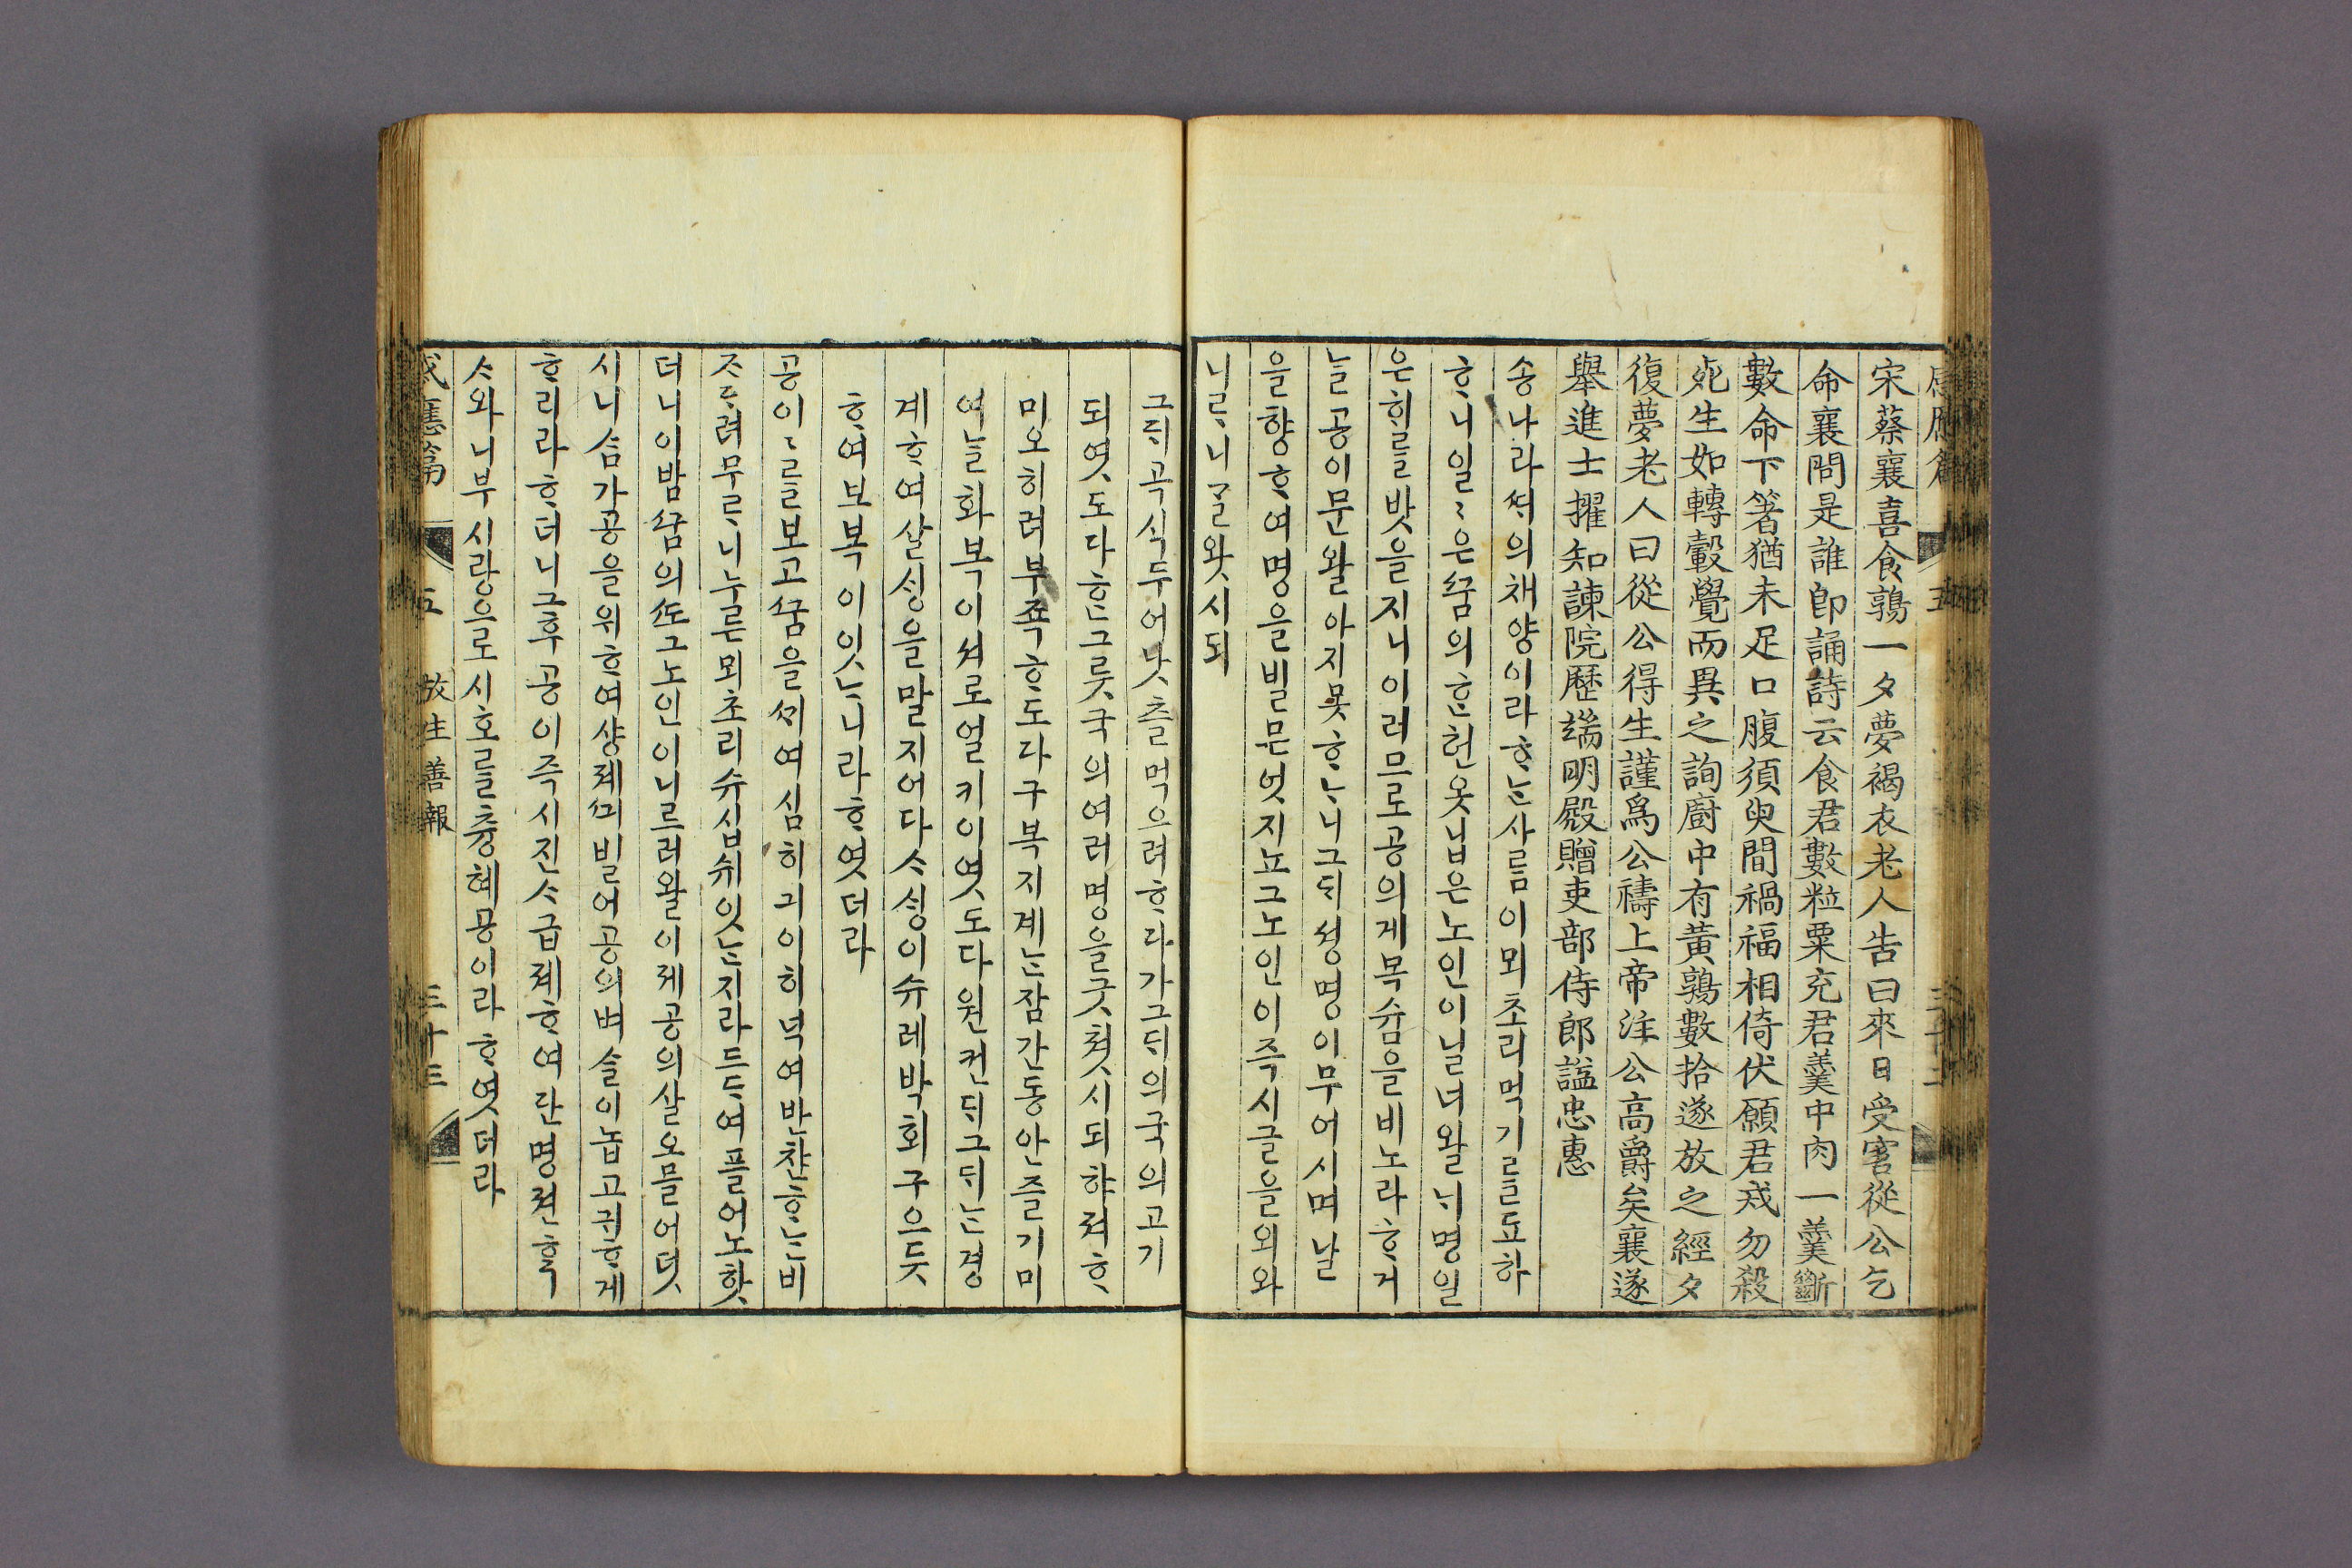 宋蔡襄喜食鶉一夕夢褐衣老人告曰來日受害從公乞
命襄問是誰卽誦詩云食君數粒粟充君羹中肉一羹斷
數命下箸猶未足口腹須臾間禍福相倚伏願君戒勿殺
死生如轉轂覺而異之詢廚中有黃鶉數拾遂放之經夕
復夢老人曰從公得生謹爲公禱上帝注公高爵矣襄遂
舉進士擢知諫院歷端明殿贈吏部侍郎諡忠惠
송나라 ᄯᅥ의채양이라 ᄒᆞᄂᆞᆫ사ᄅᆞᆷ이뫼초리먹기ᄅᆞᆯ됴하
ᄒᆞ니일〻은ᄭᅮᆷ의ᄒᆞᆫ헌옷닙은노인이닐너왈ᄂᆡ명일
은ᄒᆡᄅᆞᆯ밧을지니이러므로공의게목슘을비노라ᄒᆞ거
ᄂᆞᆯ공이문왈아지못ᄒᆞᄂᆞ니그ᄃᆡ셩명이무어시며날
을향ᄒᆞ여명을빌믄엇지뇨그노인이즉시글을외와
니ᄅᆞ니ᄀᆞᆯ왓시되
그ᄃᆡ곡식두어낫츨먹으려ᄒᆞ다가그ᄃᆡ의국의고기
되엿도다ᄒᆞᆫ그릇국의여러명을긋쳣시되하져ᄒᆞ
미오히려부죡ᄒᆞ도다구복지계ᄂᆞᆫ잠간동안즐기미
여ᄂᆞᆯ화복이셔로얼키이엿도다원컨ᄃᆡ그ᄃᆡᄂᆞᆫ경
계ᄒᆞ여살ᄉᆡᆼ을말지어다ᄉᆞᄉᆡᆼ이슈레박회구으듯
ᄒᆞ여보복이잇ᄂᆞ니라ᄒᆞ엿더라
공이〻ᄅᆞᆯ보고ᄭᅮᆷ을ᄭᆡ여심히긔이히녁여반찬ᄒᆞᄂᆞᆫ비
ᄌᆞᄃᆞ려무ᄅᆞ니누른뫼초리슈십쉬잇ᄂᆞᆫ지라드ᄃᆡ여플어노핫
더니이밤ᄭᅮᆷ의ᄯᅩ그노인이니르러왈이제공의살오믈어덧
시니ᄉᆞᆷ가공을위ᄒᆞ여샹졔ᄭᅴ빌어공의벼슬이놉고귀ᄒᆞ게
ᄒᆞ리라ᄒᆞ더니그후공이즉시진ᄉᆞ급졔ᄒᆞ여단명젼ᄒᆞᆨ
ᄉᆞ와니부시랑으로시호ᄅᆞᆯ츙혜공이라ᄒᆞ엿더라
感應篇 五 放生善報 三十三